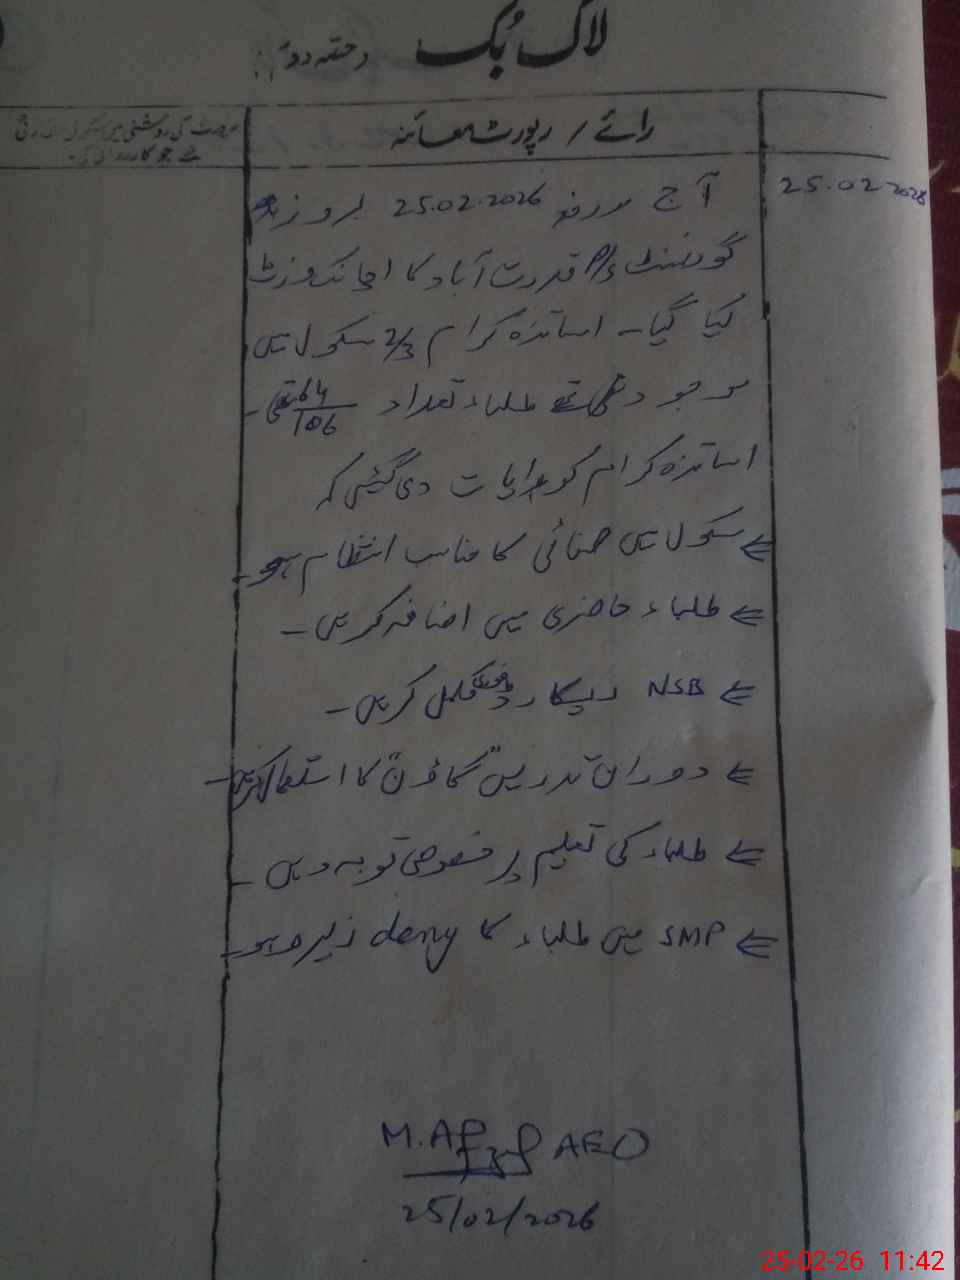 لاگ بُک (حصّہ دوئم)
رائے / رپورٹ معائنہ
25.02.2026
آج مورخہ 25.02.2026 بروز بدھ
گورنمنٹ P/S قدرت آباد کا اچانک وزٹ
کیا گیا۔ اساتذہ کرام 2/3 سکول میں
موجود تھے طلباء تعداد 64/106 تھی۔
اساتذہ کرام کو ہدایات دی گئیں کہ
⇐ سکول میں صفائی کا مناسب انتظام ہو۔
⇐ طلباء حاضری میں اضافہ کریں۔
⇐ NSB ریکارڈ مکمل کریں۔
⇐ دوران تدریس "گاؤن" کا استعمال کریں۔
⇐ طلباء کی تعلیم پر خصوصی توجہ دیں۔
⇐ SMP میں طلباء کا deny زیرو ہو۔
M. Afzal AEO
25/02/2026
25-02-26 11:42